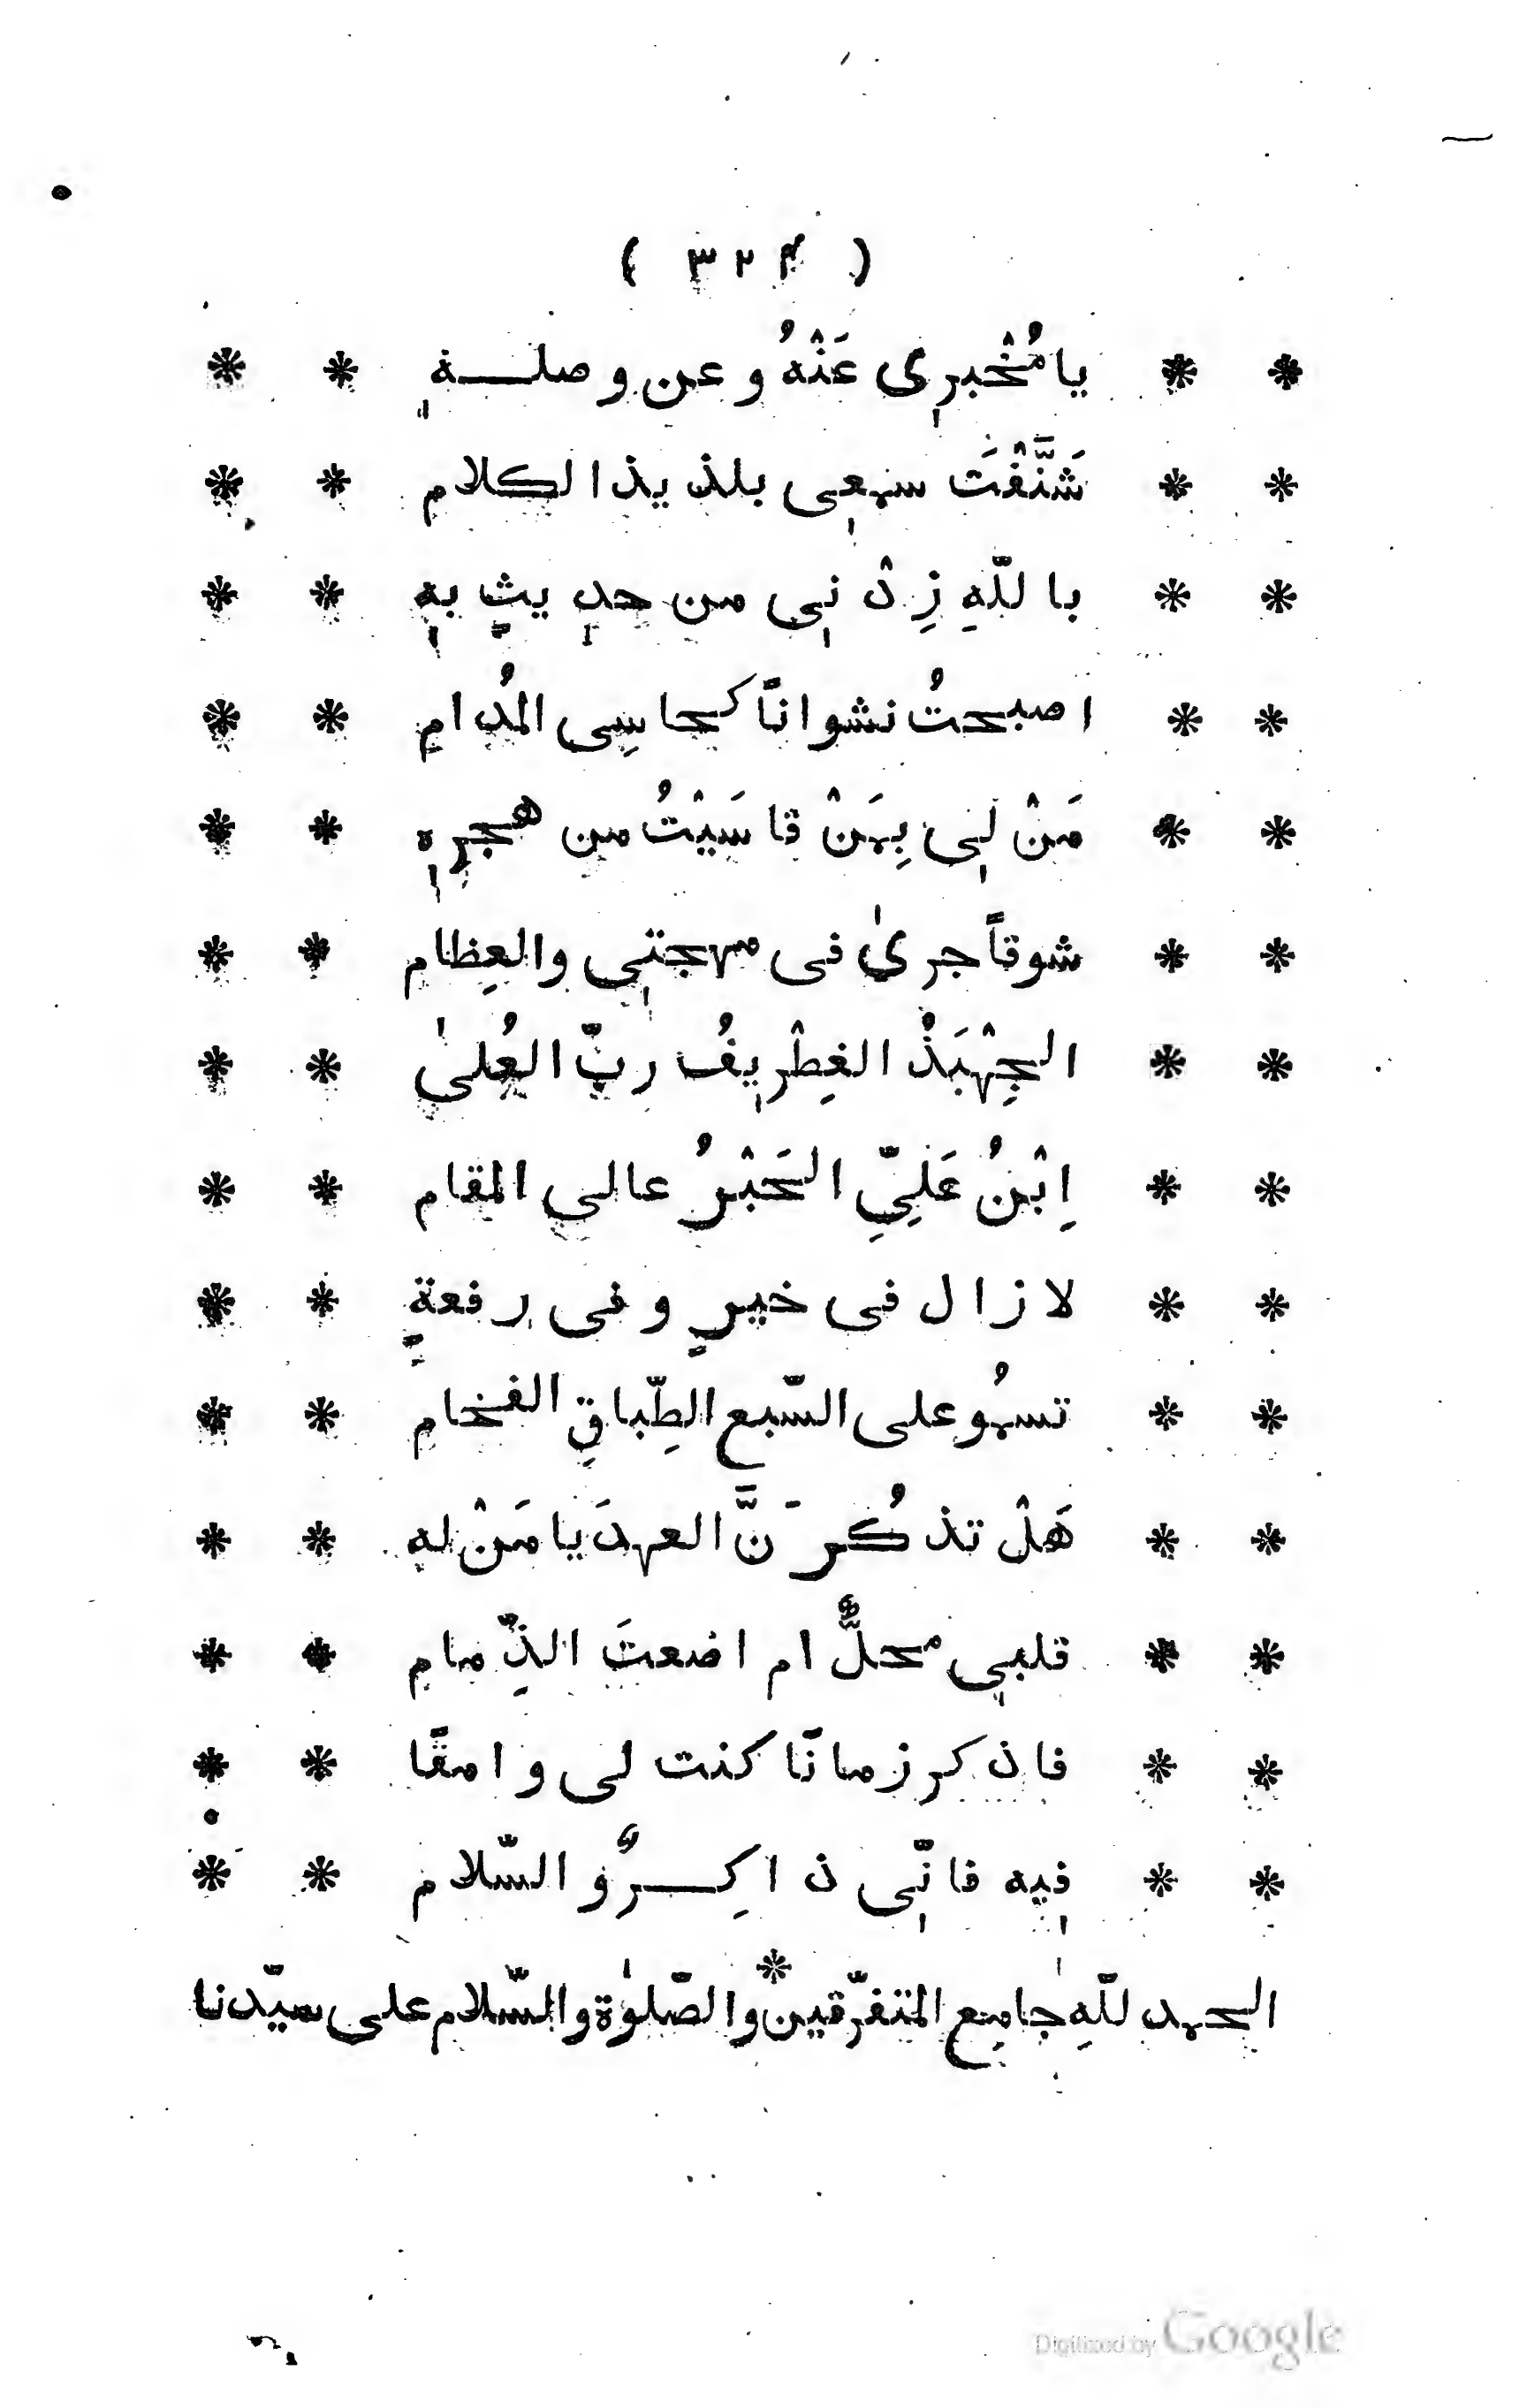 ( ٣٢٤ )
* * يا مُخْبرِي عَنْهُ وعن وصلــهِ * *
* * شَنَّفْتَ سمعِي بلذيذ الكلام * *
* * باللّهِ زِدْنِي من حدِيثٍ بهِ * *
* * اصبحتُ نشوانًا كحاسِي المُدام * *
* * مَنْ لِي بِمَنْ قاسَيْتُ من هجرِهِ * *
* * شوقاً جرىٰ في مهجتِي والعِظام * *
* * الجِهْبَذُ الغِطْرِيفُ ربّ العُلىٰ * *
* * اِبْنُ عَلِيِّ الحَبْرُ عالي المقام * *
* * لا زال في خيرٍ وفي رفعةٍ * *
* * تسمُو على السّبع الطِّباقِ الفخام * *
* * هَلْ تذكُرَنَّ العهدَ يا مَنْ له * *
* * قلبي محلٌّ ام اضعتَ الذِّمام * *
* * فاذكر زمانًا كنت لي وامقًا * *
* * فِيه فانِّي ذاكِــرٌ والسّلام * *
الحمد للّهِ جامِع المتفرّقين * والصّلوٰة والسّلام على سيّدنا
Digitized by Google